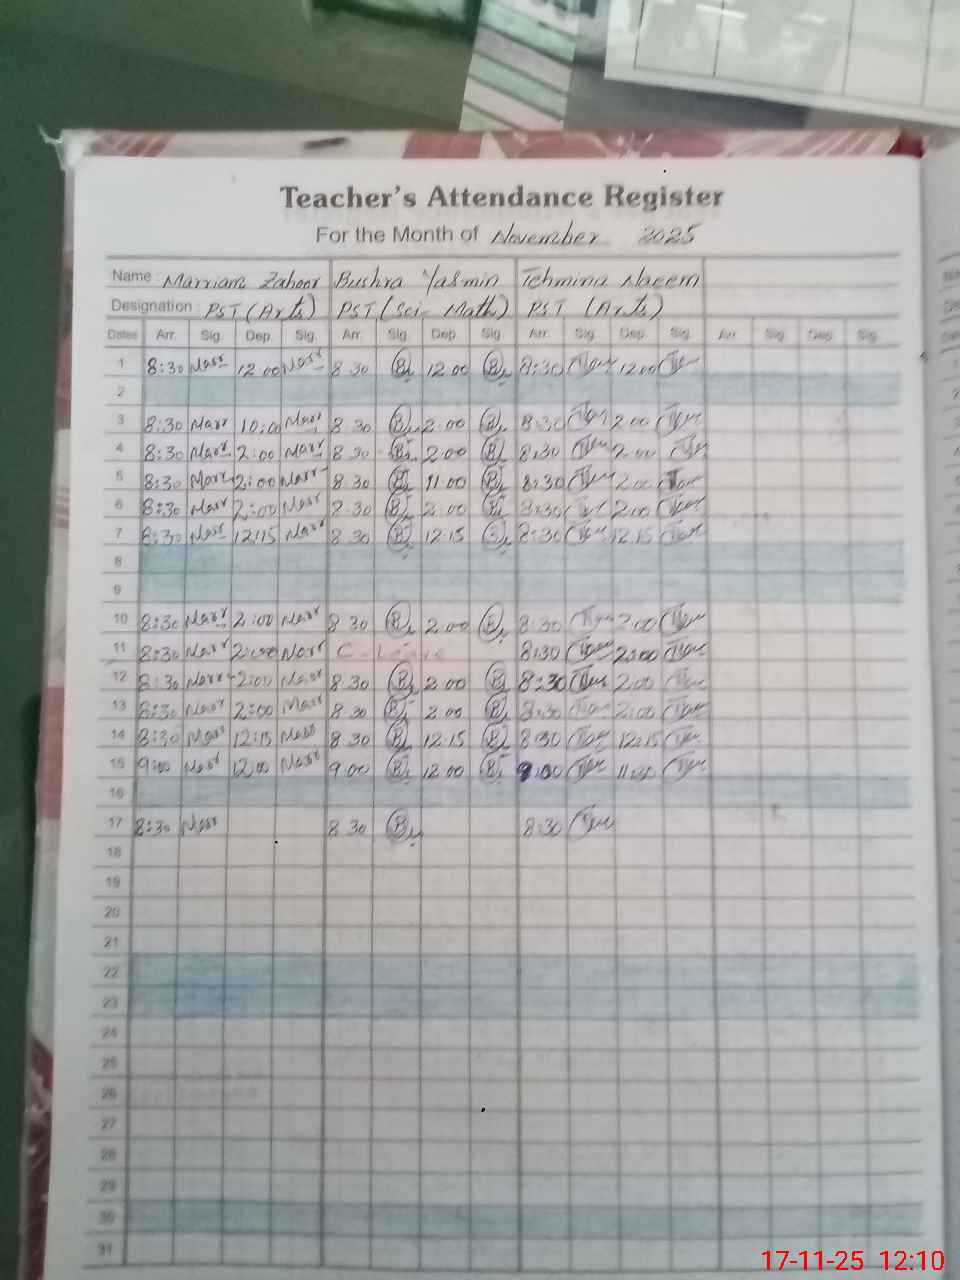 Teacher's Attendance Register
For the Month of November 2025
Name Marriam Zahoor Bushra Yasmin Tehmina Naeem
Designation PST (Arts) PST (Sci-Math) PST (Arts)
Dates Arr. Sig. Dep. Sig. Arr. Sig. Dep. Sig. Arr. Sig. Dep. Sig. Arr. Sig. Dep. Sig.
1 8:30 Marr 12 00 Marr 8 30 B 12 00 B 8:30 Tem 12 00 Tem
2
3 8:30 Marr 10:00 Marr 8 30 B 2:00 B 8:30 Tem 2 00 Tem
4 8:30 Marr 2:00 Marr 8 30 B 2 00 B 8:30 Tem 2 00 Tem
5 8:30 Marr 2:00 Marr 8 30 B 11 00 B 8:30 Tem 2 00 Tem
6 8:30 Marr 2:00 Marr 8 30 B 2 00 B 8:30 Tem 2 00 Tem
7 8:30 Marr 12:15 Marr 8 30 B 12 15 B 8:30 Tem 12 15 Tem
8
9
10 8:30 Marr 2:00 Marr 8 30 B 2 00 B 8:30 Tem 2 00 Tem
11 8:30 Marr 2:00 Marr C-Leave 8:30 Tem 2:00 Tem
12 8:30 Marr 2:00 Marr 8 30 B 2 00 B 8:30 Tem 2 00 Tem
13 8:30 Marr 2:00 Marr 8 30 B 2 00 B 8:30 Tem 2:00 Tem
14 8:30 Marr 12:15 Marr 8 30 B 12 15 B 8:30 Tem 12:15 Tem
15 9:00 Marr 12:00 Marr 9 00 B 12 00 B 9:00 Tem 11:30 Tem
16
17 8:30 Marr 8 30 B 8:30 Tem
18
19
20
21
22
23
24
25
26
27
28
29
30
31
17-11-25 12:10